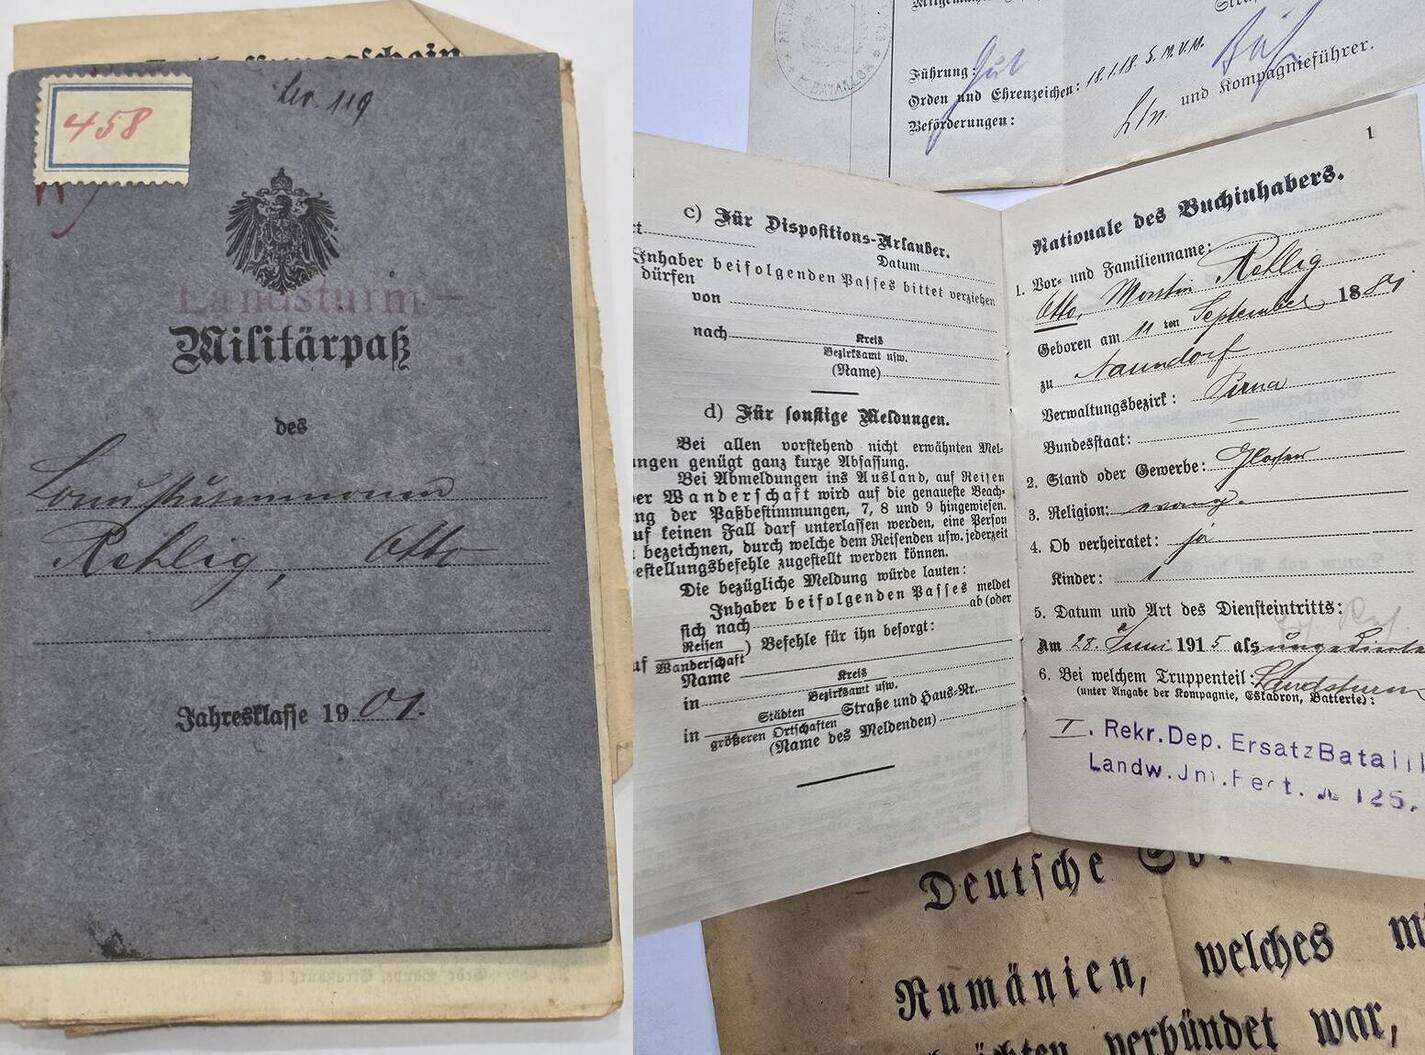 458
Nr. 119
Landsturm –
Militärpaß
des
Landsturmmanns
Rehlig, Otto
Jahresklasse 19 01.
Führung: Gut
Orden und Ehrenzeichen: 18.1.18. S. M. V. M.
Beförderungen:
Ltn. und Kompagnieführer.
c) Für Dispositions-Urlauber.
Datum
Inhaber beifolgenden Passes bittet verziehen
dürfen
von
nach
Kreis
Bezirksamt usw.
(Name)
d) Für sonstige Meldungen.
Bei allen vorstehend nicht erwähnten Mel-
ungen genügt ganz kurze Abfassung.
Bei Abmeldungen ins Ausland, auf Reisen
er Wanderschaft wird auf die genaueste Beach-
ng der Paßbestimmungen, 7, 8 und 9 hingewiesen.
uf keinen Fall darf unterlassen werden, eine Person
bezeichnen, durch welche dem Reisenden usw. jederzeit
estellungsbefehle zugestellt werden können.
Die bezügliche Meldung würde lauten:
Inhaber beifolgenden Passes meldet
sich nach ab (oder
uf Reisen
Wanderschaft ) Befehle für ihn besorgt:
Name
in Kreis
Bezirksamt usw.
in Städten
größeren Ortschaften Straße und Haus-Nr.
(Name des Meldenden)
1
Nationale des Buchinhabers.
1. Vor- und Familienname:
Otto, Martin Rehlig
Geboren am 11 ten September 1881
zu Naundorf
Verwaltungsbezirk: Pirna
Bundesstaat: —
2. Stand oder Gewerbe: Glaser
3. Religion: evang.
4. Ob verheiratet: ja
Kinder: 1
5. Datum und Art des Diensteintritts:
Am 28. Juni 1915 als ungedienter
6. Bei welchem Truppenteil: Landsturm
(unter Angabe der Kompagnie, Eskadron, Batterie):
I. Rekr. Dep. Ersatz Bataill
Landw. Inf. № 125.
Deutsche
Rumänien, welches
verbündet war,